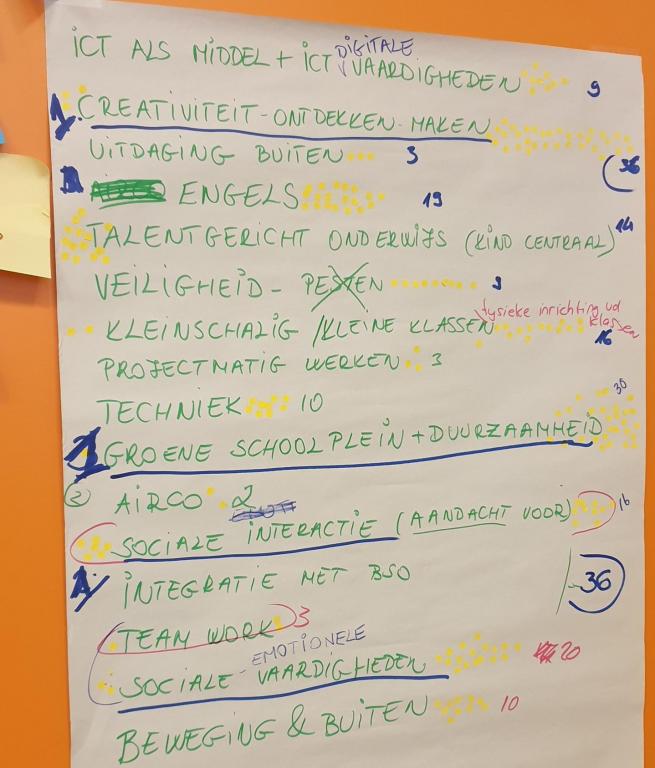 DIGITALE
ICT ALS MIDDEL + ICT VAARDIGHEDEN 9
1 CREATIVITEIT-ONTDEKKEN-MAKEN
UITDAGING BUITEN 3 36
ENGELS 19
TALENTGERICHT ONDERWIJS (KIND CENTRAAL) 14
VEILIGHEID - PESTEN 9
fysieke inrichting vd klassen
KLEINSCHALIG / KLEINE KLASSEN 16
PROJECTMATIG WERKEN 3
TECHNIEK 10
30
GROENE SCHOOLPLEIN + DUURZAAMHEID
2 AIRCO 2
SOCIALE INTERACTIE (AANDACHT VOOR) 16
INTEGRATIE MET BSO 36
TEAM WORK 3
EMOTIONELE
SOCIALE - VAARDIGHEDEN 20
BEWEGING & BUITEN 10